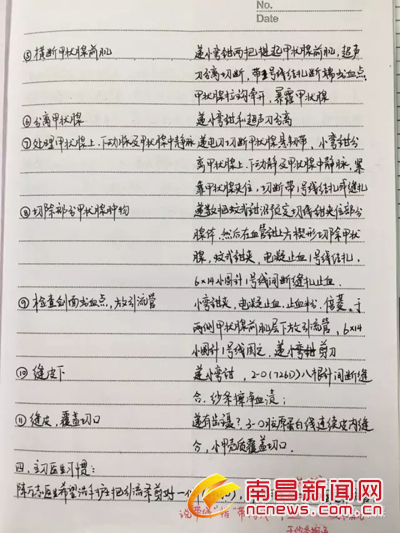 No.
Date
⑤横断甲状腺前肌 递小弯钳两把提起甲状腺前肌，超声
刀分离切断，带1号线结扎断端出血点，
甲状腺拉钩牵开，暴露甲状腺
⑥分离甲状腺 递小弯钳和超声刀分离
⑦处理甲状腺上、下动脉及甲状腺中静脉 递电刀切断甲状腺悬韧带，小弯钳分
离甲状腺上、下动静及甲状腺中静脉，
甲状腺夹住，切断带1号线结扎或缝扎
⑧切除部分甲状腺肿物 递数把蚊式钳沿预定切线钳夹住部分
腺体，然后在血管钳上方楔形切除甲状
腺，蚊式钳夹，电凝止血1号线结扎，
6×14小圆针1号线间断缝扎止血。
⑨检查创面出血点，放引流管 小弯钳夹，电凝止血，止血粉、倍菱。于
两侧甲状腺前肌层下放引流管，6×14
小圆针1号线固定，递小弯钳剪刀
⑩缝皮下 递小弯钳，2-0 八根针间断缝
合，纱条擦净血渍；
⑪缝皮，覆盖切口 递有齿镊？3-0 线连续皮内缝
合，小 敷贴覆盖切口。
四、主刀医生习惯：
医生希望洗手 把引流 剪
南昌新闻网
ncnews.com.cn